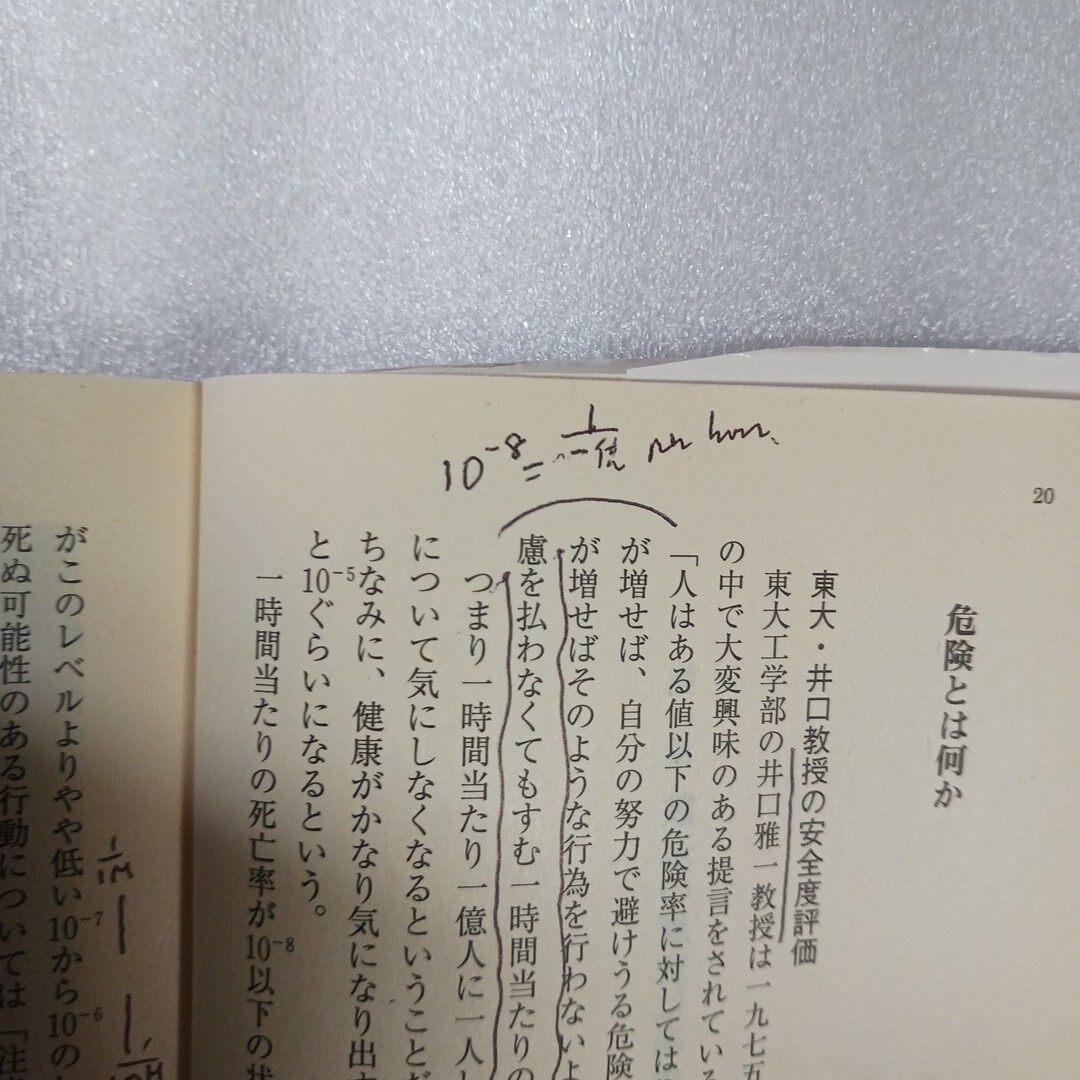 10⁻⁸ = 1/一億 per hour.
20
危険とは何か
東大・井口教授の安全度評価
東大工学部の井口雅一教授は一九七五
の中で大変興味のある提言をされている
「人はある値以下の危険率に対しては
が増せば、自分の努力で避けうる危険
が増せばそのような行為を行わないよ
慮を払わなくてもすむ一時間当たりの
つまり一時間当たり一億人に一人
について気にしなくなるということだ
ちなみに、健康がかなり気になり出
と10⁻⁵ぐらいになるという。
一時間当たりの死亡率が10⁻⁸以下の状
がこのレベルよりやや低い10⁻⁷から10⁻⁶の
死ぬ可能性のある行動については「注
1/1M